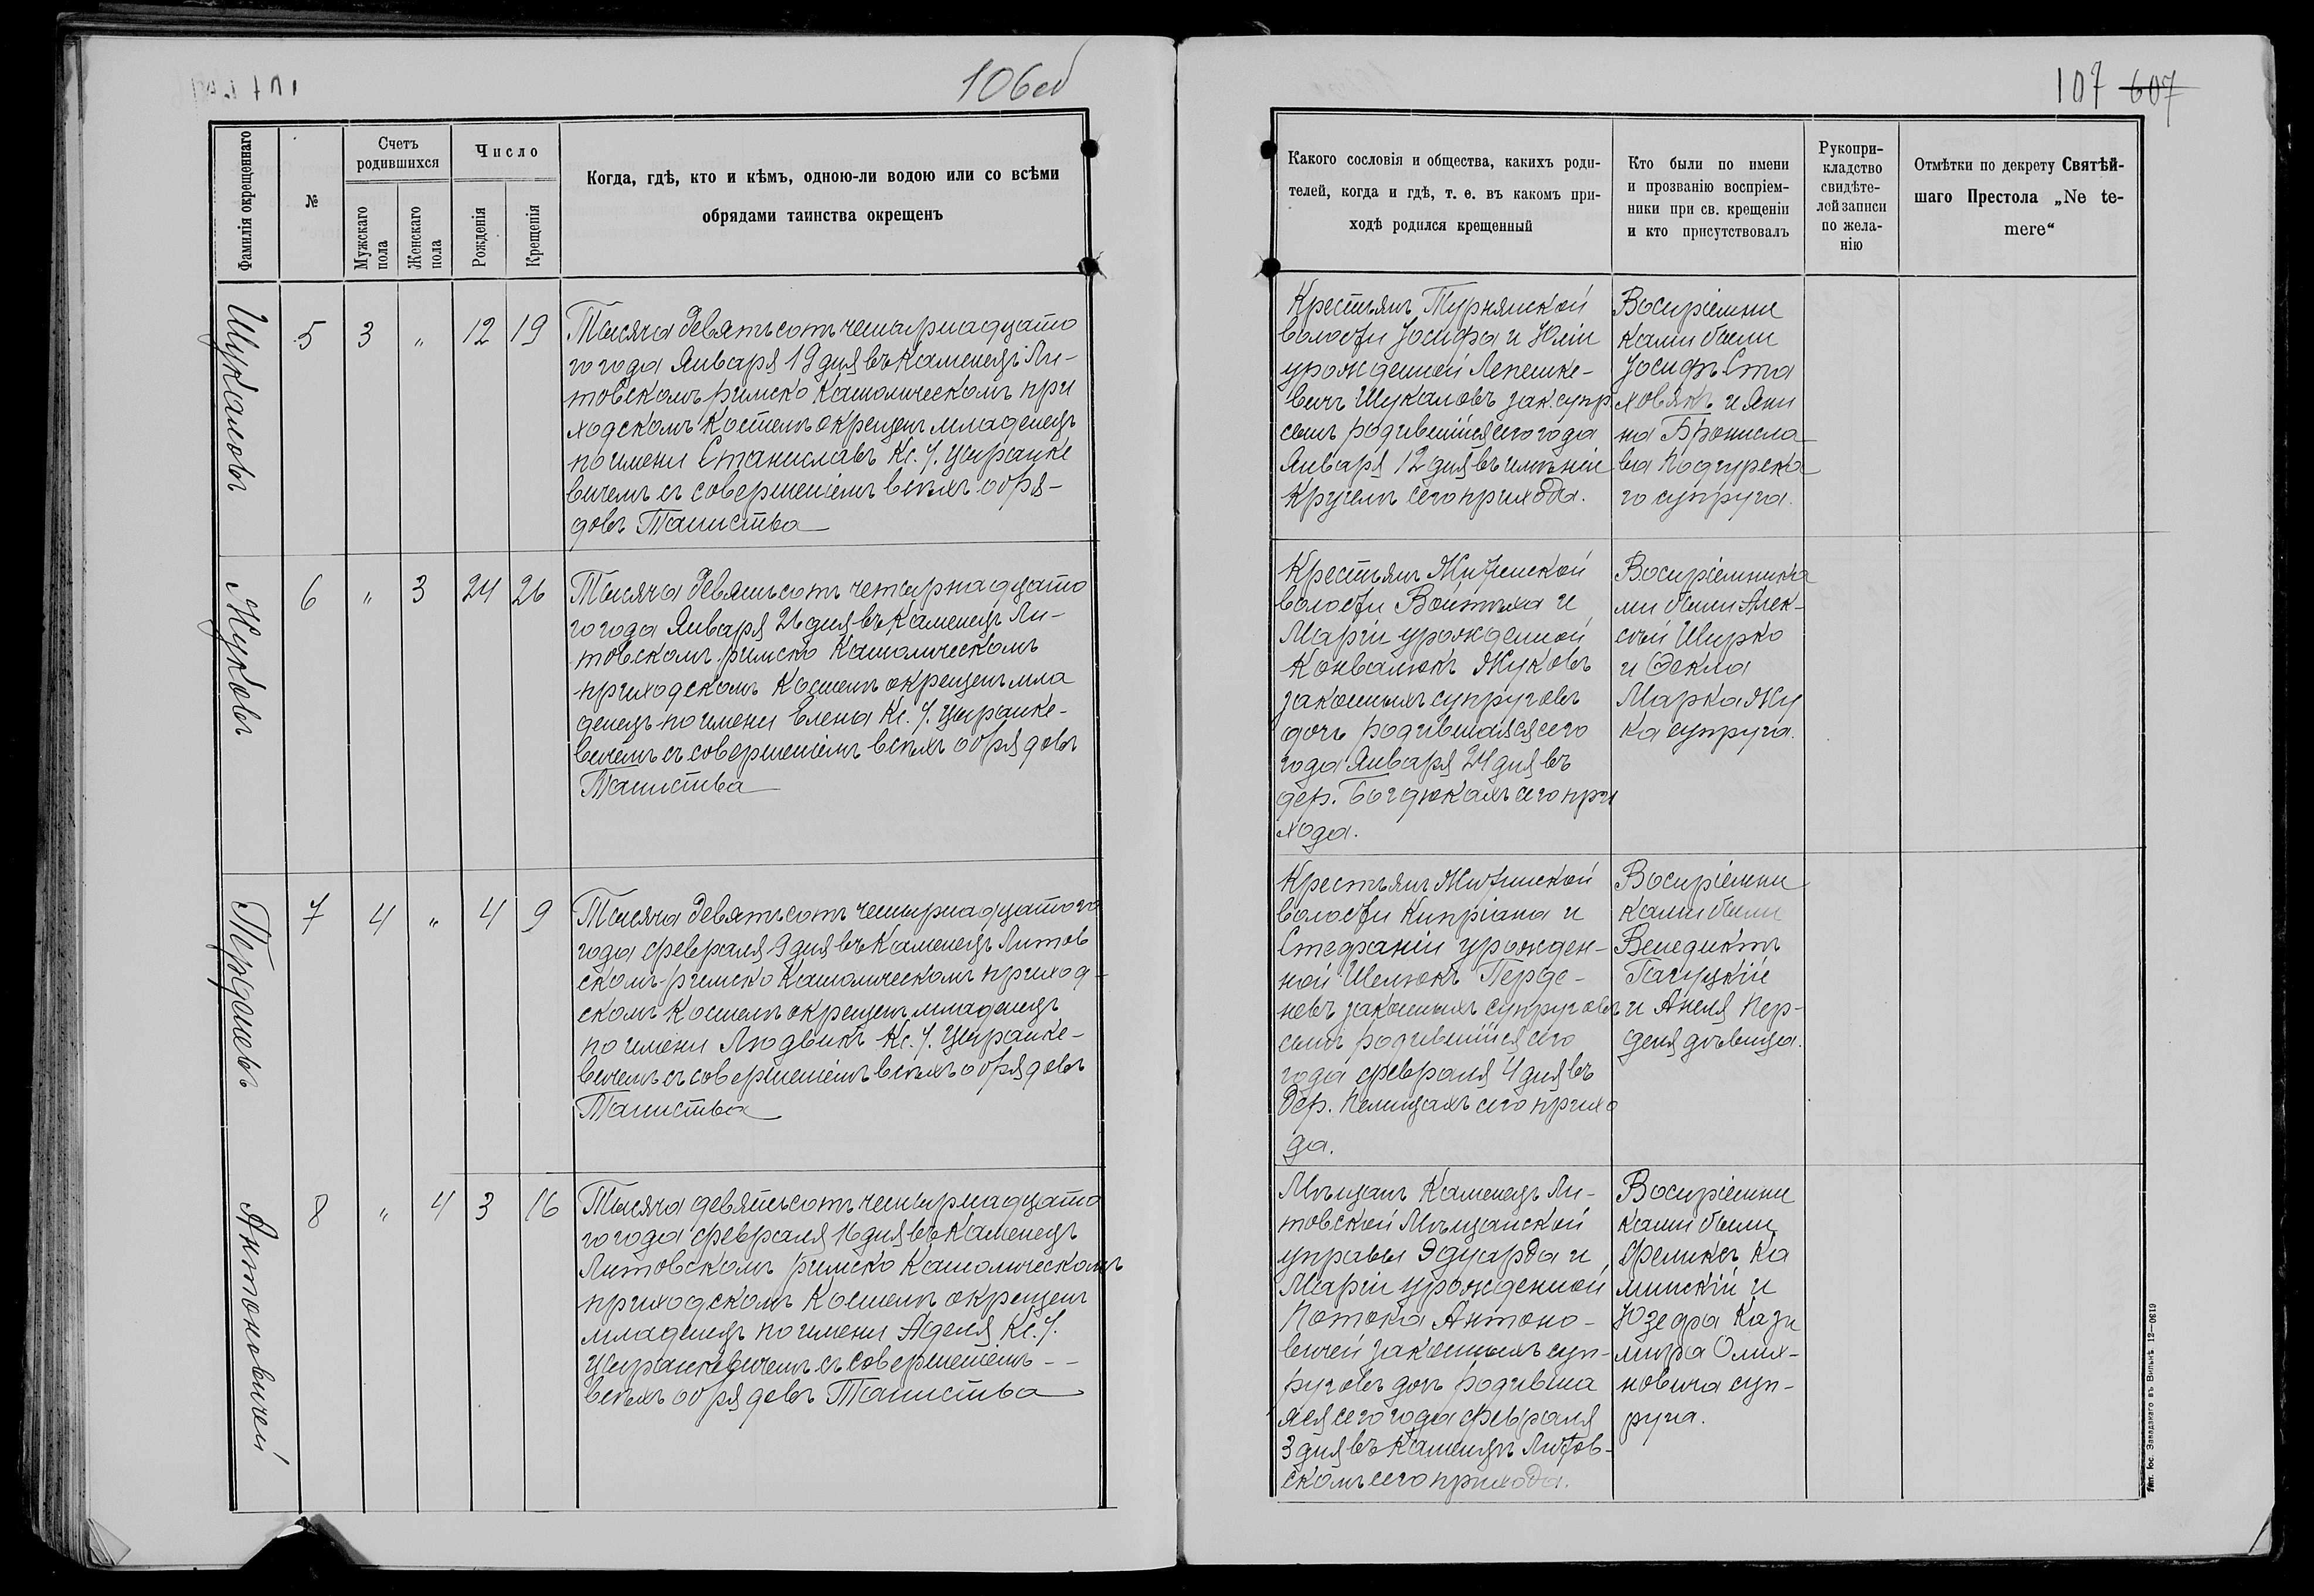 106об
Фамилія окрещеннаго
№
Счетъ родившихся
Мужскаго пола
Женскаго пола
Число
Рожденія
Крещенія
Когда, гдѣ, кто и кѣмъ, одною-ли водою или со всѣми
обрядами таинства окрещенъ
Шукаловъ
5 3 „ 12 19
Тысяча девятьсотъ четырнадцато
го года Января 19 дня въ Каменецъ Ли-
товскомъ римско Католическомъ при
ходскомъ Костелѣ окрещенъ младенецъ
по имени Станиславъ Кс. І. Цыранке
вичемъ съ совершеніемъ всѣхъ обря-
довъ Таинства
Жуковъ
6 „ 3 24 26
Тысяча девятьсотъ четырнадцато
го года Января 26 дня въ Каменецъ Ли-
товскомъ римско Католическомъ
приходскомъ Костелѣ окрещенъ мла
денецъ по имени Елена Кс. І. Цыранке-
вичемъ съ совершеніемъ всѣхъ обрядовъ
Таинства
Перденевъ
7 4 „ 4 9
Тысяча девятьсотъ четырнадцатого
года февраля 9 дня въ Каменецъ Литов
скомъ римско Католическомъ приход-
скомъ Костелѣ окрещенъ младенецъ
по имени Людвикъ Кс. І. Цыранке-
вичемъ съ совершеніемъ всѣхъ обрядовъ
Таинства
Антоновичей
8 „ 4 3 16
Тысяча девятьсотъ четырнадцато
го года февраля 16 дня въ Каменецъ
Литовскомъ римско Католическомъ
приходскомъ Костелѣ окрещенъ
младенецъ по имени Аделя Кс. І.
Цыранкевичемъ съ совершеніемъ - -
всѣхъ обрядовъ Таинства
107 607
Какого сословія и общества, какихъ роди-
телей, когда и гдѣ, т. е. въ какомъ при-
ходѣ родился крещенный
Кто были по имени
и прозванію воспріем-
ники при св. крещеніи
и кто присутствовалъ
Рукопри-
кладство
свидѣте-
лей записи
по жела-
нію
Отмѣтки по декрету Святѣй-
шаго Престола „Ne te-
mere“
Крестьянъ Турнянской
волости Іосифа и Юліи
урожденной Лепешке-
вичъ Шукаловъ зак. супр.
сынъ родившійся сего года
Января 12 дня въ имѣніи
Кругелъ сего прихода.
Воспріемни
ками были
Іосифъ Ста
ховякъ и Яни
на Бронисла
ва Подгурска
го супруга.
Крестьянъ Житинской
волости Войтѣха и
Маріи урожденной
Конвалюкъ Жуковъ
законныхъ супруговъ
дочь родившаяся сего
года Января 24 дня въ
дер. Богдюкахъ сего при
хода.
Воспріемника
ми были Алек-
сѣй Ширко
и Ѳекла
Марка Жу
ка супруга.
Крестьянъ Житинской
волости Кипріана и
Стефаніи урожден-
ной Шелюкъ Перде-
невъ законныхъ супруговъ
сынъ родившійся сего
года февраля 4 дня въ
дер. Пелищахъ сего прихо
да.
Воспріемни
ками были
Венедиктъ
Гагуцкій
и Анеля Пер-
деня дѣвица.
Мѣщанъ Каменецъ Ли-
товской Мѣщанской
управы Эдуарда и
Маріи урожденной
Потока Антоно-
вичей законныхъ суп-
руговъ дочь родивша
яся сего года февраля
3 дня въ Каменецъ Литов-
скомъ сего прихода.
Воспріемни
ками были
Феликсъ Ка
минскій и
Юзефа Кази
мира Олих-
новича суп-
руга.
Тип. Іос. Завадзкаго въ Вильнѣ. 12—0619